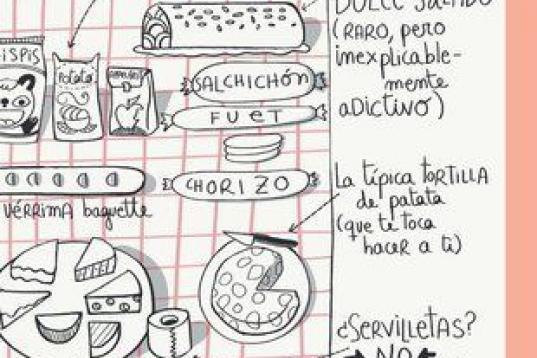 DULCE SALADO
(RARO, pero
inexplicable-
mente
aDictivo)
iSPiS
Potato
SALCHICHÓn
FUET
CHORIZO
VÉRRIMA baguette
La típica TORTILLA
de patata
(que te toca
hacer a ti)
¿SERVILLETAS?
NO